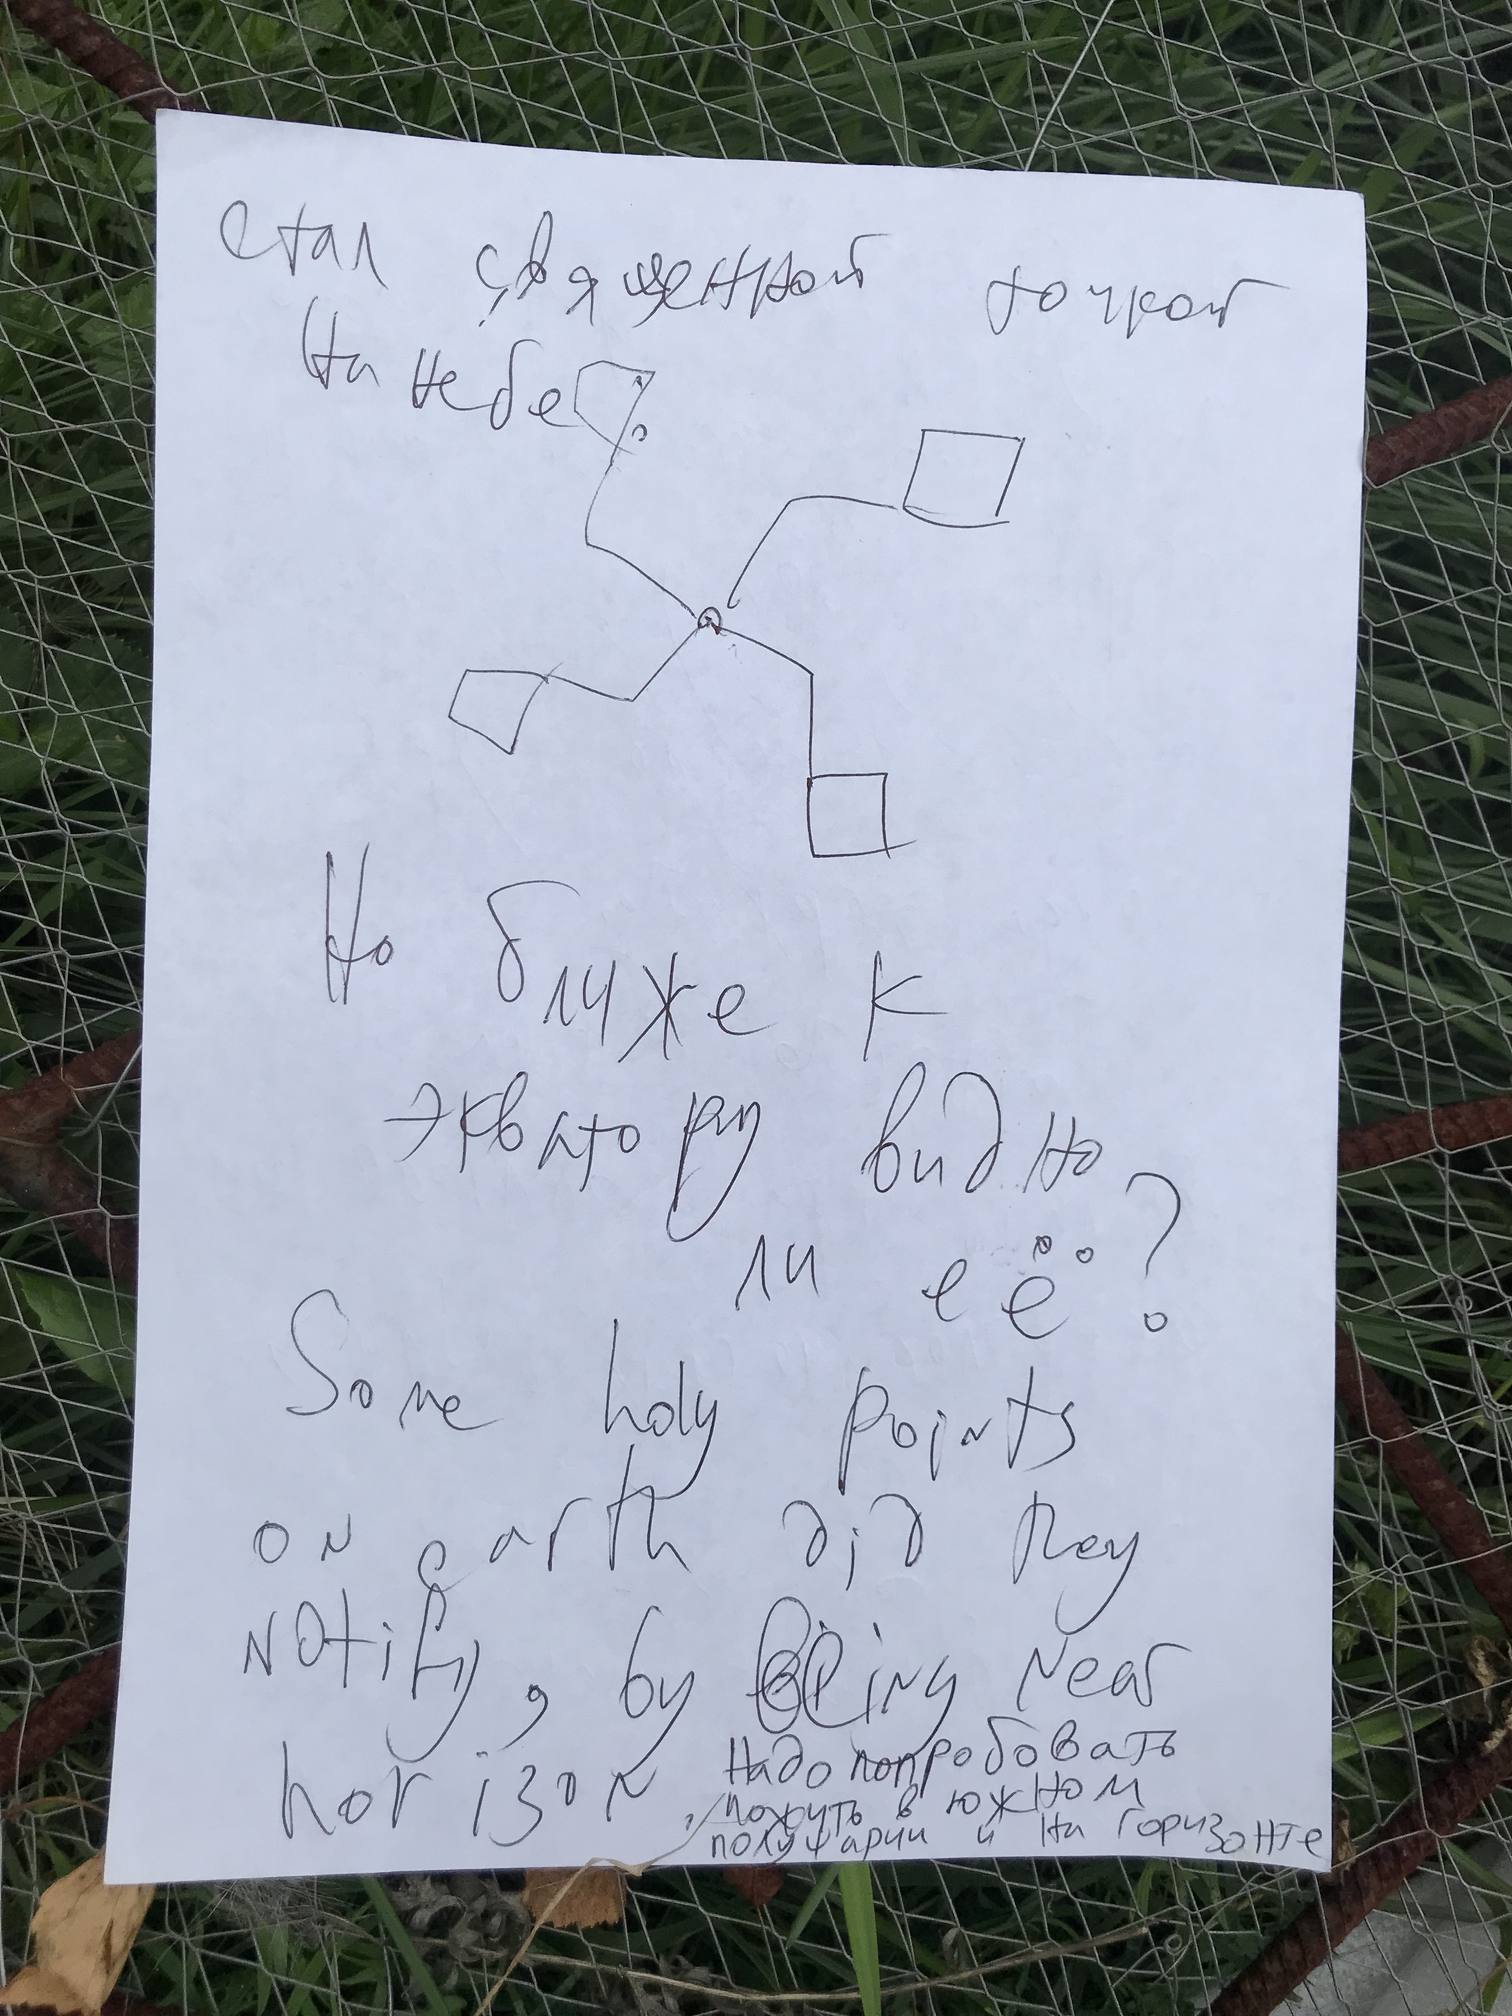 стал священной точкой
на небе
Но ближе к
экватору видно
ли её?
Some holy points
on earth did they
notify, by being near
horizon.
Надо попробовать
пожить в южном
полушарии и на горизонте